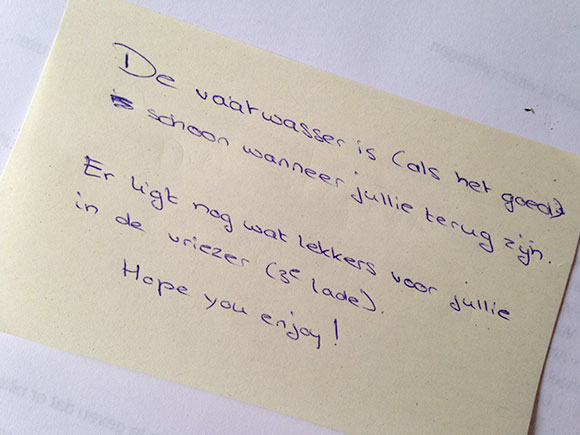 De vaatwasser is (als het goed is)
schoon wanneer jullie terug zijn.
Er ligt nog wat lekkers voor jullie
in de vriezer (3e lade).
Hope you enjoy!